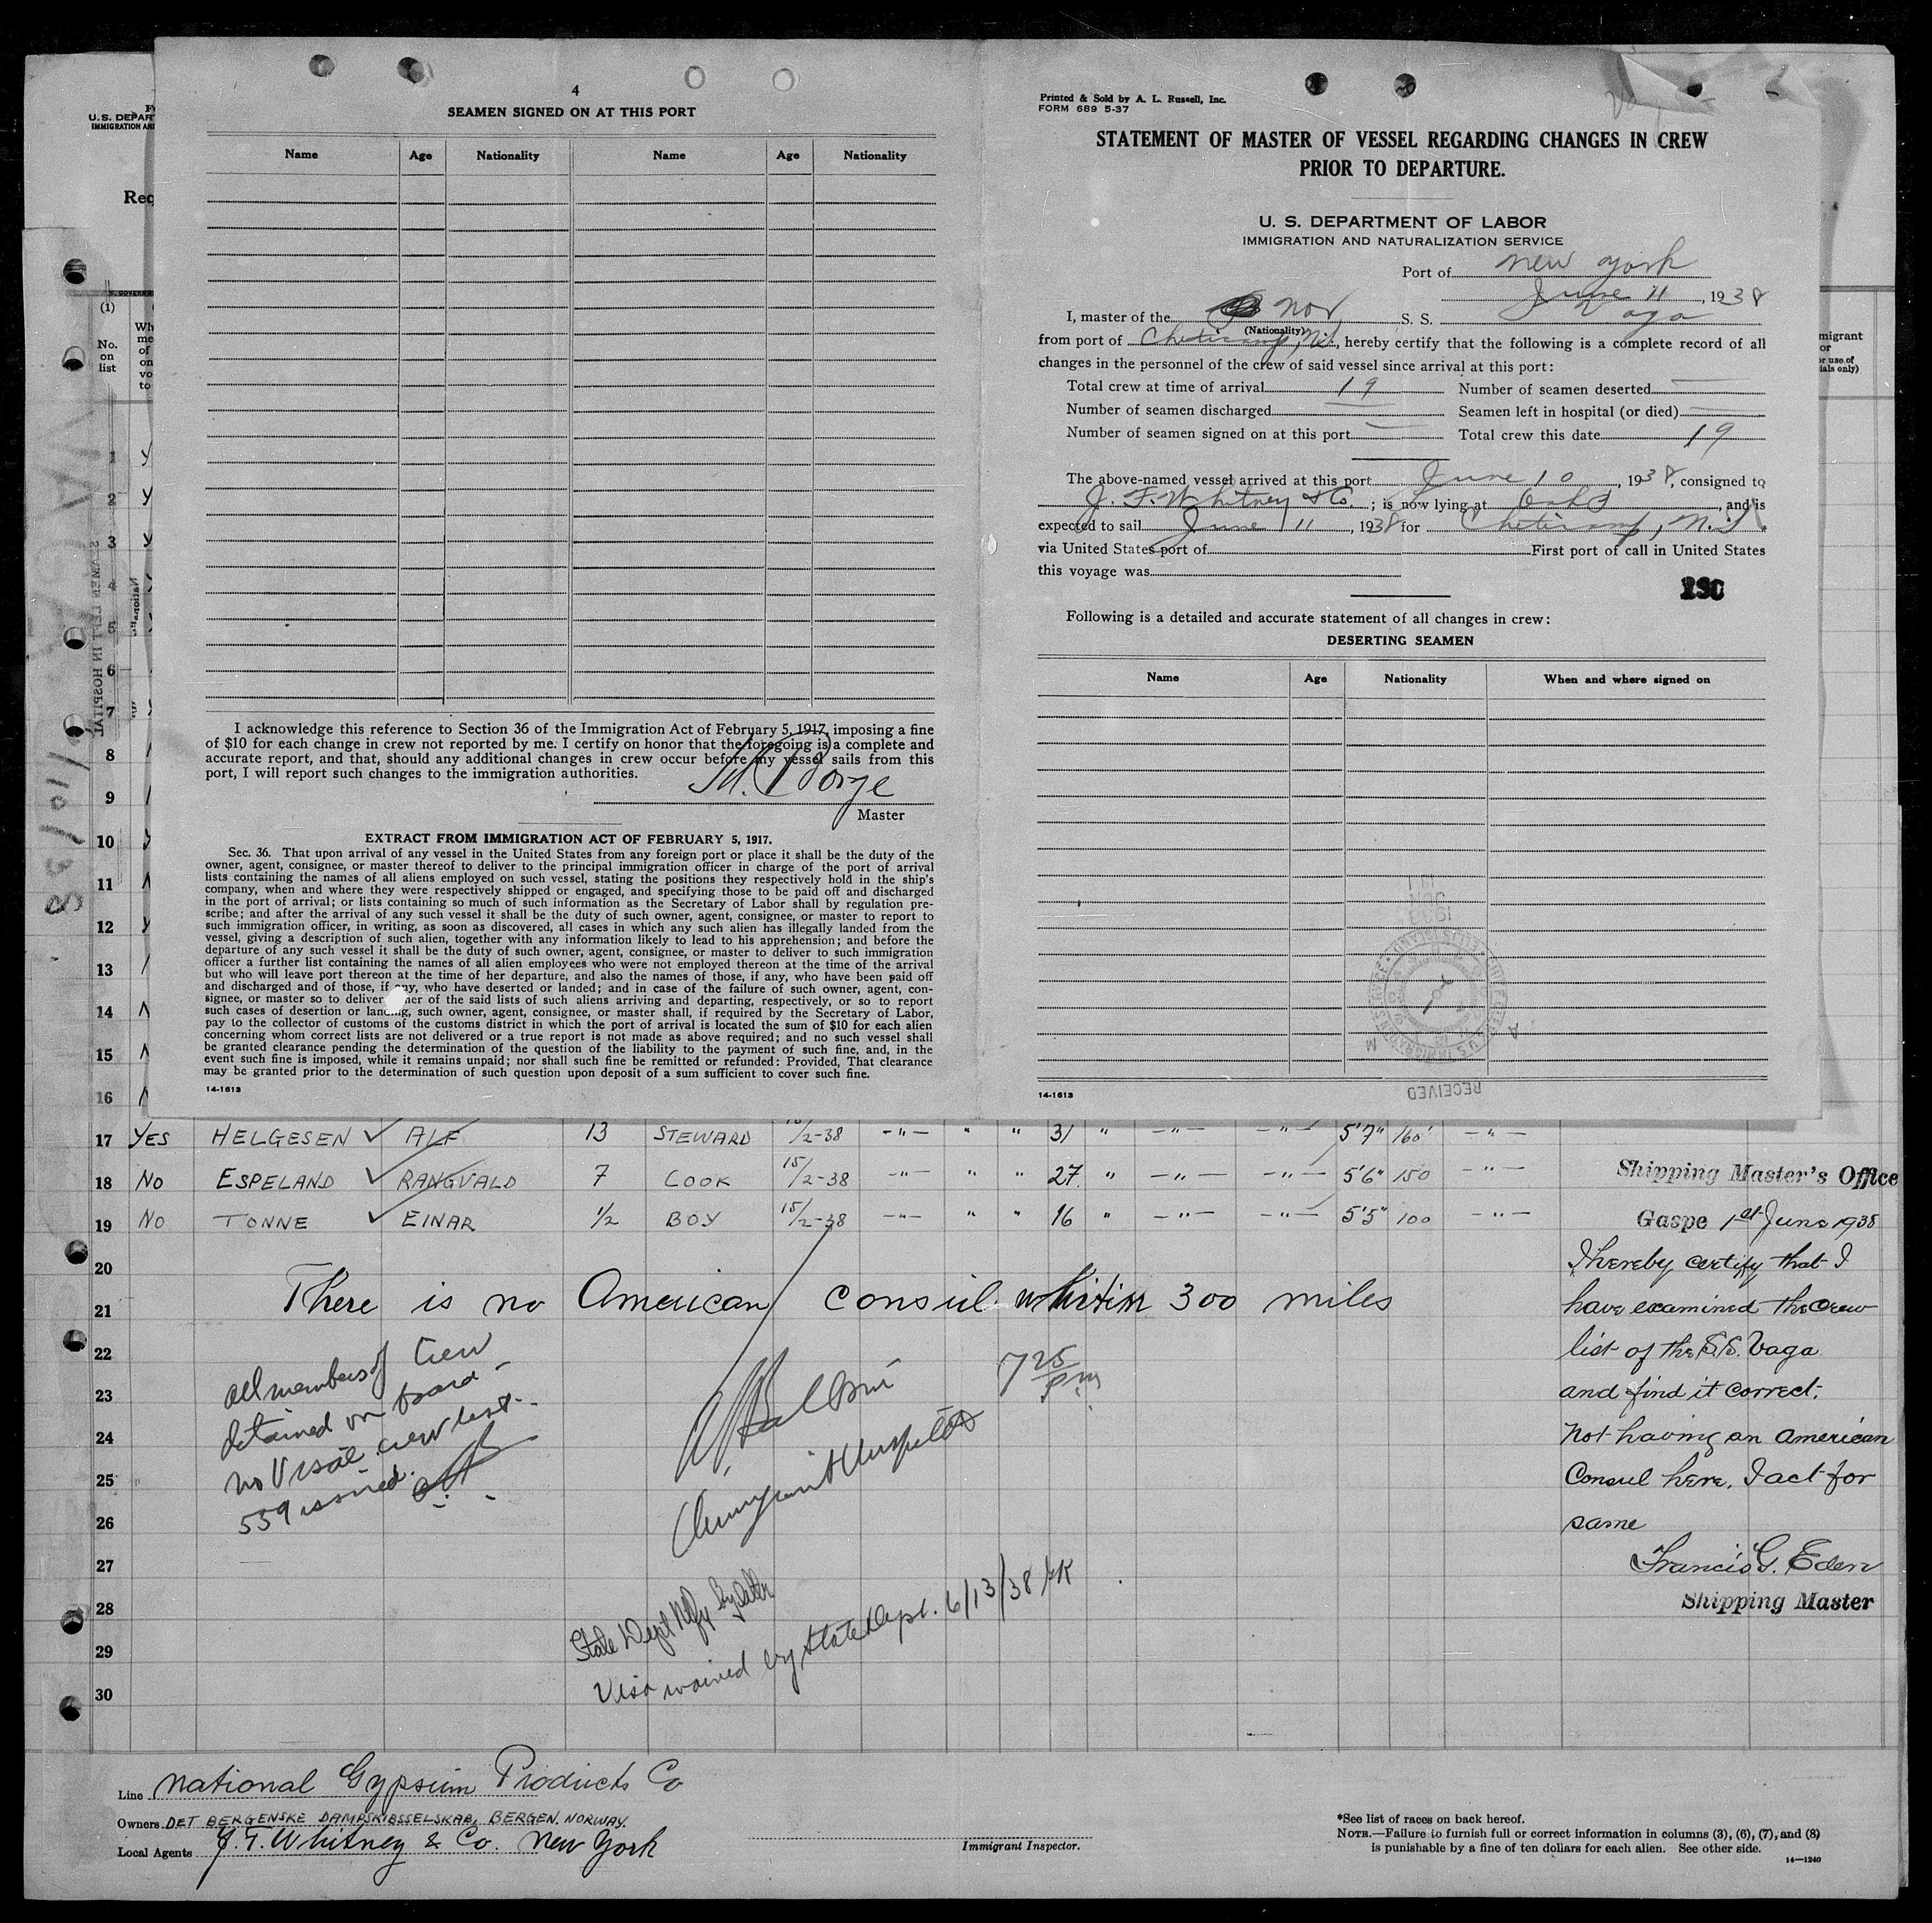 4
SEAMEN SIGNED ON AT THIS PORT
Name Age Nationality Name Age Nationality
I acknowledge this reference to Section 36 of the Immigration Act of February 5, 1917, imposing a fine
of $10 for each change in crew not reported by me. I certify on honor that the foregoing is a complete and
accurate report, and that, should any additional changes in crew occur before my vessel sails from this
port, I will report such changes to the immigration authorities.
Master
EXTRACT FROM IMMIGRATION ACT OF FEBRUARY 5, 1917.
Sec. 36. That upon arrival of any vessel in the United States from any foreign port or place it shall be the duty of the
owner, agent, consignee, or master thereof to deliver to the principal immigration officer in charge of the port of arrival
lists containing the names of all aliens employed on such vessel, stating the positions they respectively hold in the ship's
company, when and where they were respectively shipped or engaged, and specifying those to be paid off and discharged
in the port of arrival; or lists containing so much of such information as the Secretary of Labor shall by regulation pre-
scribe; and after the arrival of any such vessel it shall be the duty of such owner, agent, consignee, or master to report to
such immigration officer, in writing, as soon as discovered, all cases in which any such alien has illegally landed from the
vessel, giving a description of such alien, together with any information likely to lead to his apprehension; and before the
departure of any such vessel it shall be the duty of such owner, agent, consignee, or master to deliver to such immigration
officer a further list containing the names of all alien employees who were not employed thereon at the time of the arrival
but who will leave port thereon at the time of her departure, and also the names of those, if any, who have been paid off
and discharged and of those, if any, who have deserted or landed; and in case of the failure of such owner, agent, con-
signee, or master so to deliver of the said lists of such aliens arriving and departing, respectively, or so to report
such cases of desertion or landing, such owner, agent, consignee, or master shall, if required by the Secretary of Labor,
pay to the collector of customs of the customs district in which the port of arrival is located the sum of $10 for each alien
concerning whom correct lists are not delivered or a true report is not made as above required; and no such vessel shall
be granted clearance pending the determination of the question of the liability to the payment of such fine, and, in the
event such fine is imposed, while it remains unpaid; nor shall such fine be remitted or refunded: Provided, That clearance
may be granted prior to the determination of such question upon deposit of a sum sufficient to cover such fine.
14-1613
Printed & Sold by A. L. Russell, Inc.
FORM 689 5-37
STATEMENT OF MASTER OF VESSEL REGARDING CHANGES IN CREW
PRIOR TO DEPARTURE.
U. S. DEPARTMENT OF LABOR
IMMIGRATION AND NATURALIZATION SERVICE
Port of New York
June 11, 1938
I, master of the Nor S. S. Vaga
(Nationality)
from port of Cheticamp, N.S., hereby certify that the following is a complete record of all
changes in the personnel of the crew of said vessel since arrival at this port:
Total crew at time of arrival 19 Number of seamen deserted —
Number of seamen discharged — Seamen left in hospital (or died) —
Number of seamen signed on at this port — Total crew this date 19
The above-named vessel arrived at this port June 10, 1938, consigned to
J. F. Whitney & Co.; is now lying at , and is
expected to sail June 11, 1938 for Cheticamp, N.S.
via United States port of First port of call in United States
this voyage was
230
Following is a detailed and accurate statement of all changes in crew:
DESERTING SEAMEN
Name Age Nationality When and where signed on
RECEIVED
14-1613
U.S. DEPAR
IMMIGRATION AN
Req
(1)
No.
on
list
1
2
3
4
5
6
7
8
9
10
11
12
13
14
15
16
17 YES HELGESEN ✓ ALF 13 STEWARD 15/2-38 -"- " " 31 " -"- -"- 5'7" 160 -"-
18 NO ESPELAND ✓ RANGVALD 7 COOK 15/2-38 -"- " " 27 " -"- -"- 5'6" 150 -"-
19 NO TONNE ✓ EINAR 1/2 BOY 15/2-38 -"- " " 16 " -"- -"- 5'5" 100 -"-
20
21 There is no American Consul whitin 300 miles
22
23
24
25
26
27
28
29
30
all members of Crew
detained on board -
no Visaé crew list -
559 issued.
7 25 pm
Immigrant Inspector
State Dept by letter
Visa waived by State Dept. 6/13/38
Shipping Master's Office
Gaspe 1st June 1938
I hereby certify that I
have examined the Crew
list of the S/S. Vaga
and find it correct.
Not having an American
Consul here, I act for
same
Francis G. Eden
Shipping Master
Line National Gypsum Products Co
Owners DET BERGENSKE DAMPSKIBSSELSKAB, BERGEN. NORWAY.
Local Agents J. F. Whitney & Co. New York
Immigrant Inspector.
*See list of races on back hereof.
NOTE.—Failure to furnish full or correct information in columns (3), (6), (7), and (8)
is punishable by a fine of ten dollars for each alien. See other side.
14—1240